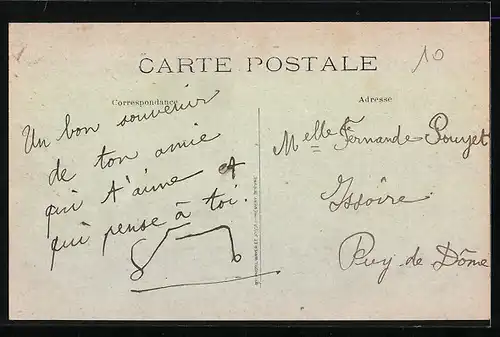 10
CARTE POSTALE
Correspondance
Adresse
Un bon souvenir
de ton amie
qui t'aime et
qui pense à toi.
Melle Fernande Pouget
Issoire
Puy-de Dôme